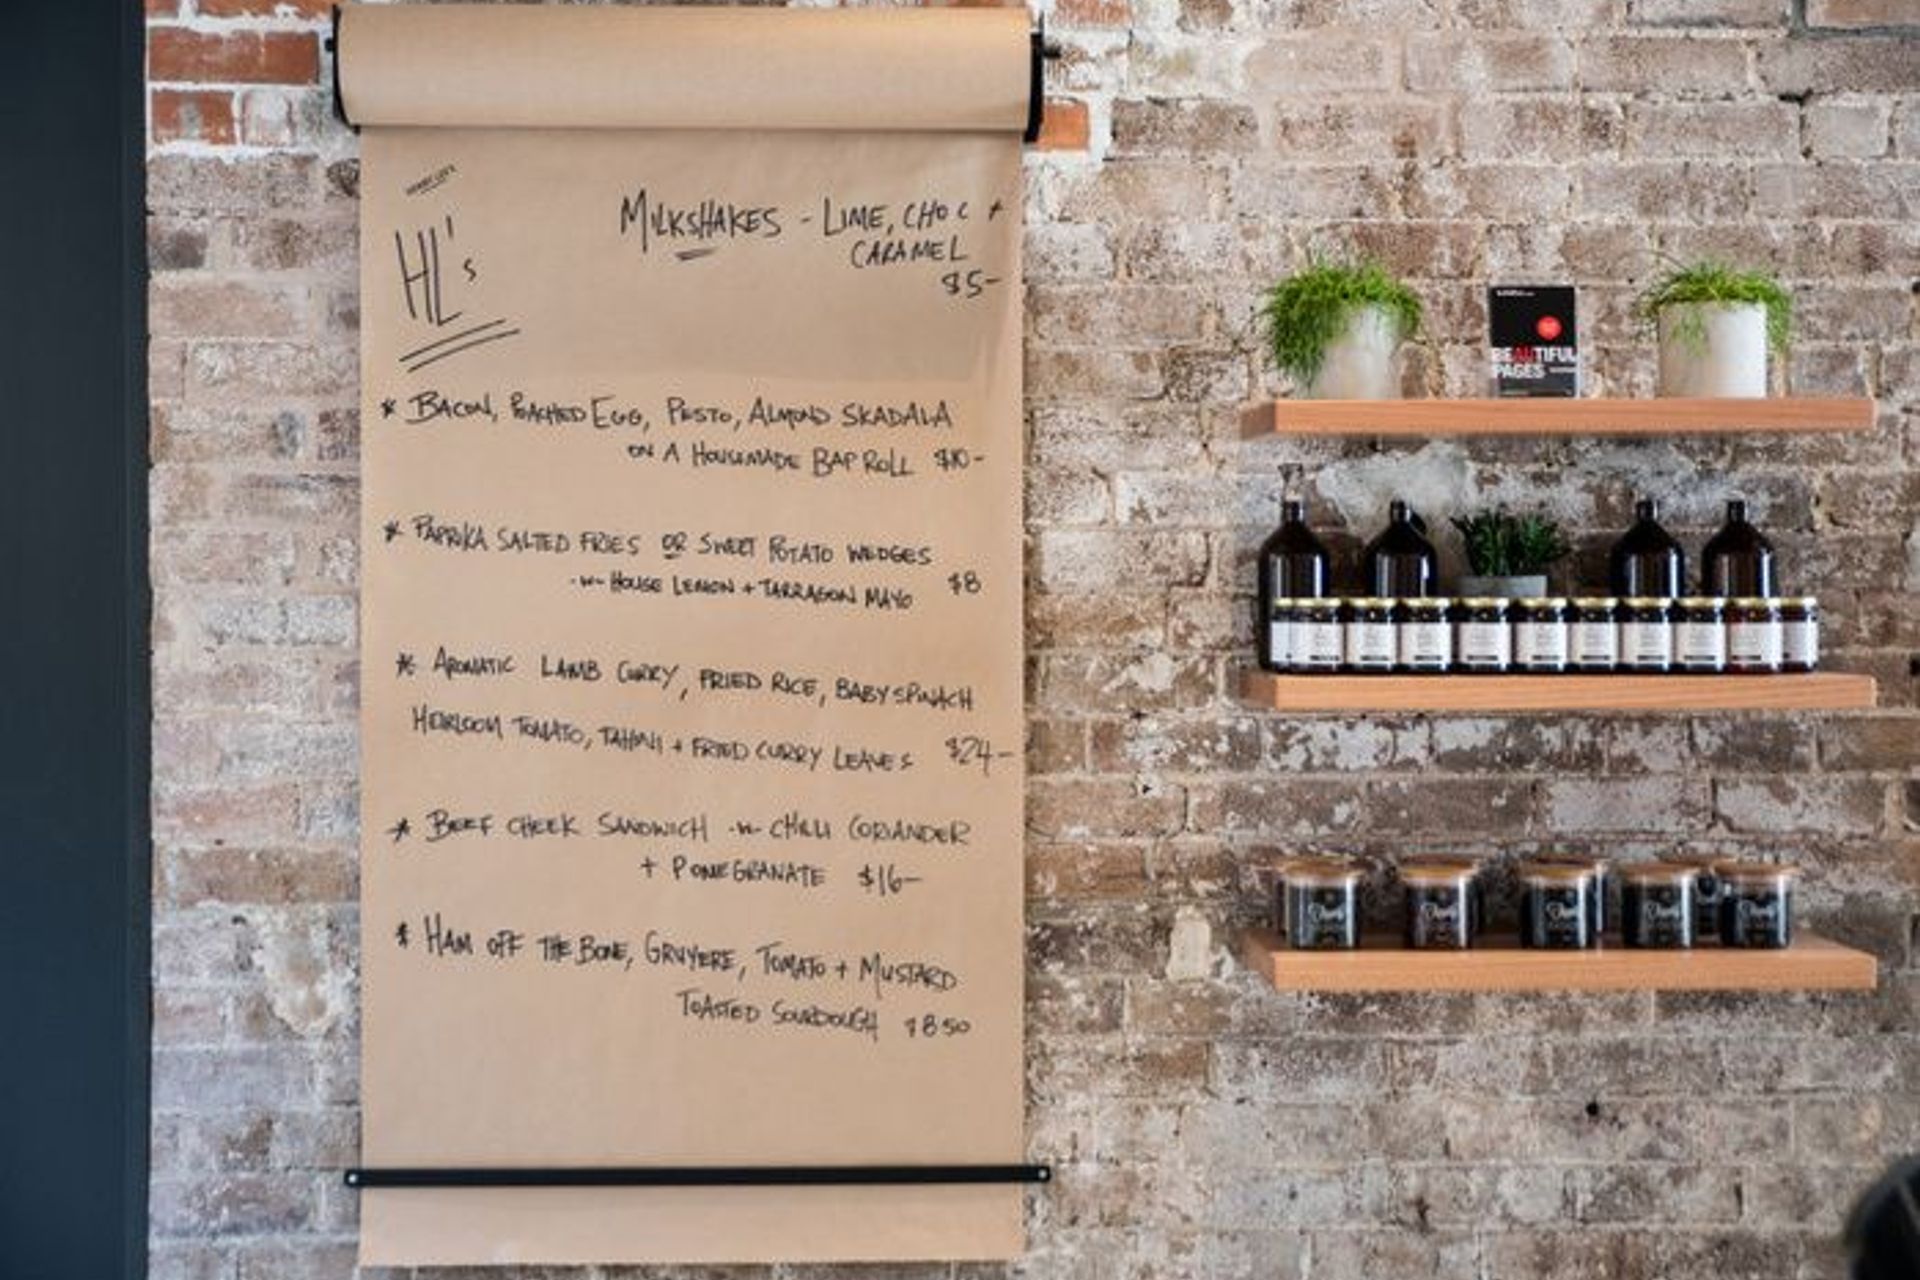 HL's
MILKSHAKES - LIME, CHOC +
CARAMEL
$5-
* BACON, POACHED EGG, PESTO, ALMOND SKADALA
ON A HOUSEMADE BAP ROLL $10-
* PAPRIKA SALTED FRIES OR SWEET POTATO WEDGES
-w- HOUSE LEMON + TARRAGON MAYO $8
* AROMATIC LAMB CURRY, FRIED RICE, BABY SPINACH
HEIRLOOM TOMATO, TAHINI + FRIED CURRY LEAVES $24-
* BEEF CHEEK SANDWICH -w- CHILLI CORIANDER
+ POMEGRANATE $16-
* HAM OFF THE BONE, GRUYERE, TOMATO + MUSTARD
TOASTED SOURDOUGH $8.50
BEAUTIFUL
PAGES